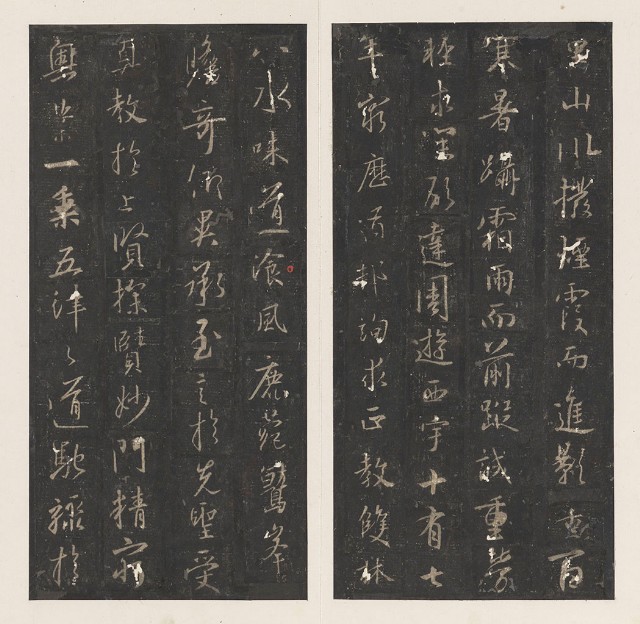 里山川撥煙霞而進影百重
寒暑躡霜雨而前蹤誠重勞
輕求深願達周遊西宇十有七
年窮歷道邦詢求正教雙林
八水味道湌風鹿菀鷲峯
瞻奇仰異承至言於先聖受
真教於上賢探賾妙門精窮
奧業一乘五律之道馳驟於